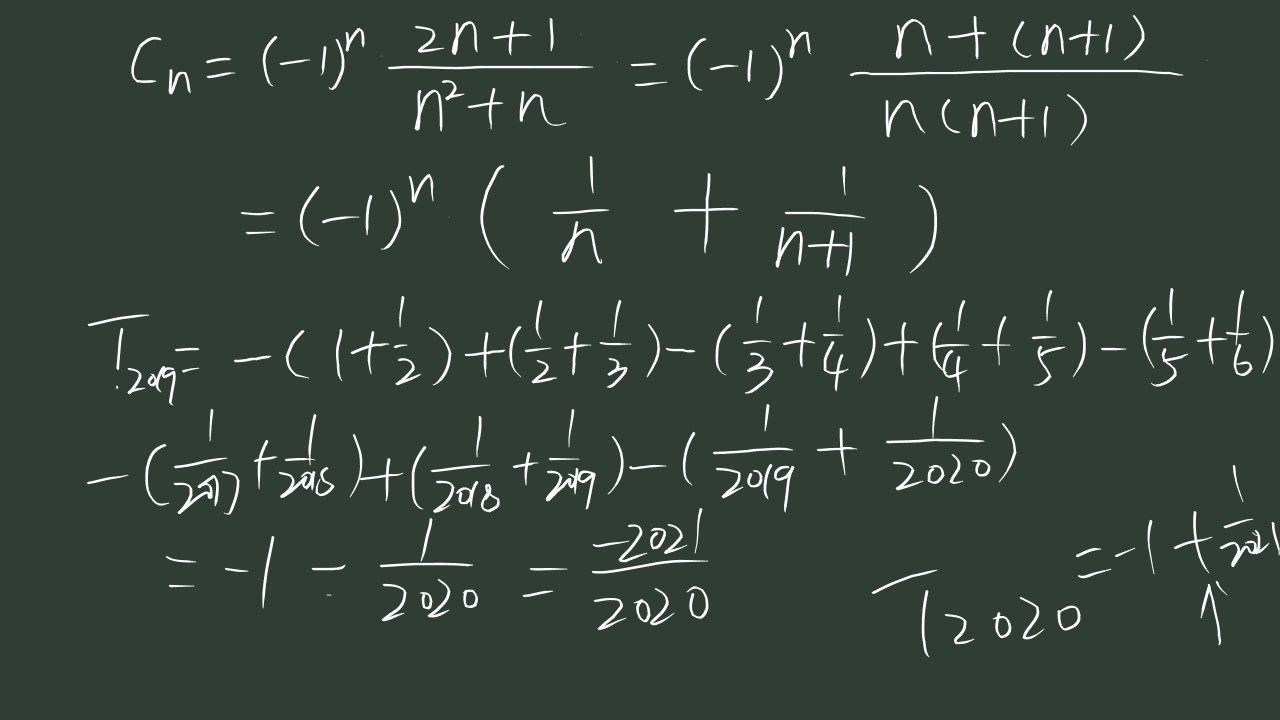 Cₙ = (-1)ⁿ (2n+1)/(n²+n) = (-1)ⁿ (n+(n+1))/(n(n+1))
= (-1)ⁿ ( 1/n + 1/(n+1) )
T₂₀₁₉ = -(1+1/2)+(1/2+1/3)-(1/3+1/4)+(1/4+1/5)-(1/5+1/6)
-(1/2017+1/2018)+(1/2018+1/2019)-(1/2019+1/2020)
= -1 - 1/2020 = -2021/2020
T₂₀₂₀ = -1 + 1/2021
↑